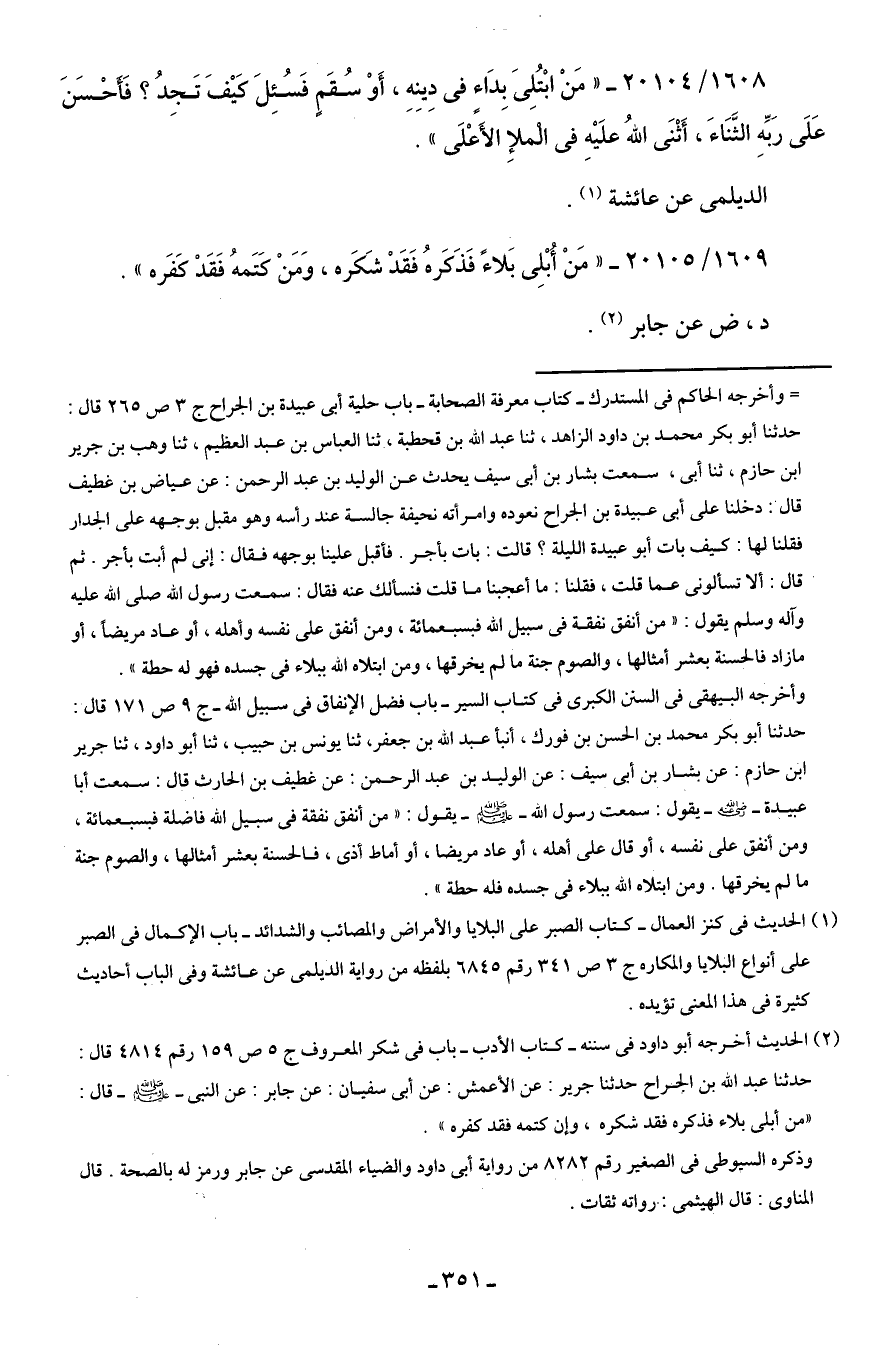 ٢٠١٠٤/١٦٠٨ ـ « مَنْ ابْتُلِىَ بِدَاءٍ فى دِينِهِ ، أَوْ سُقَمٍ فَسُئِلَ كَيْفَ تَجِدُ ؟ فَأَحْسَنَ
عَلَى رَبِّهِ الثَّنَاءَ ، أَثْنَى اللهُ عَلَيْهِ فى الْملإِ الأَعْلَى » .
الديلمى عن عائشة (١) .
٢٠١٠٥/١٦٠٩ ـ « مَنْ أُبْلِى بَلاءً فَذَكَرهُ فَقَدْ شَكَرَه ، وَمَنْ كَتَمهُ فَقَدْ كَفَره » .
د ، ض عن جابر (٢) .
= وأخرجه الحاكم فى المستدرك ـ كتاب معرفة الصحابة ـ باب حلية أبى عبيدة بن الجراح ج ٣ ص ٢٦٥ قال :
حدثنا أبو بكر محمد بن داود الزاهد ، ثنا عبد الله بن قحطبة ، ثنا العباس بن عبد العظيم ، ثنا وهب بن جرير
ابن حازم ، ثنا أبى ، سمعت بشار بن أبى سيف يحدث عن الوليد بن عبد الرحمن : عن عياض بن غطيف
قال : دخلنا على أبى عبيدة بن الجراح نعوده وامرأته نحيفة جالسة عند رأسه وهو مقبل بوجهه على الجدار
فقلنا لها : كيف بات أبو عبيدة الليلة ؟ قالت : بات بأجر . فأقبل علينا بوجهه فقال : إنى لم أبت بأجر . ثم
قال : ألا تسألونى عما قلت ، فقلنا : ما أعجبنا ما قلت فنسألك عنه فقال : سمعت رسول الله صلى الله عليه
وآله وسلم يقول : « من أنفق نفقة فى سبيل الله فبسبعمائة ، ومن أنفق على نفسه وأهله ، أو عاد مريضاً ، أو
مازاد فالحسنة بعشر أمثالها ، والصوم جنة ما لم يخرقها ، ومن ابتلاه الله ببلاء فى جسده فهو له حطة » .
وأخرجه البيهقى فى السنن الكبرى فى كتاب السير ـ باب فضل الإنفاق فى سبيل الله ـ ج ٩ ص ١٧١ قال :
حدثنا أبو بكر محمد بن الحسن بن فورك ، أنبأ عبد الله بن جعفر، ثنا يونس بن حبيب ، ثنا أبو داود ، ثنا جرير
ابن حازم : عن بشار بن أبى سيف : عن الوليد بن عبد الرحمن : عن غطيف بن الحارث قال : سمعت أبا
عبيدة ـ رضي الله عنه ـ يقول : سمعت رسول الله ـ ﷺ ـ يقول : « من أنفق نفقة فى سبيل الله فاضلة فبسبعمائة ،
ومن أنفق على نفسه ، أو قال على أهله ، أو عاد مريضا ، أو أماط أذى ، فالحسنة بعشر أمثالها ، والصوم جنة
ما لم يخرقها . ومن ابتلاه الله ببلاء فى جسده فله حطة » .
(١) الحديث فى كنز العمال ـ كتاب الصبر على البلايا والأمراض والمصائب والشدائد ـ باب الإكمال فى الصبر
على أنواع البلايا والمكاره ج ٣ ص ٣٤١ رقم ٦٨٤٥ بلفظه من رواية الديلمى عن عائشة وفى الباب أحاديث
كثيرة فى هذا المعنى تؤيده .
(٢) الحديث أخرجه أبو داود فى سننه ـ كتاب الأدب ـ باب فى شكر المعروف ج ٥ ص ١٥٩ رقم ٤٨١٤ قال :
حدثنا عبد الله بن الجراح حدثنا جرير : عن الأعمش : عن أبى سفيان : عن جابر : عن النبى ـ ﷺ ـ قال :
«من أبلى بلاء فذكره فقد شكره ، وإن كتمه فقد كفره » .
وذكره السيوطى فى الصغير رقم ٨٢٨٢ من رواية أبى داود والضياء المقدسى عن جابر ورمز له بالصحة . قال
المناوى : قال الهيثمى : رواته ثقات .
ـ ٣٥١ ـ